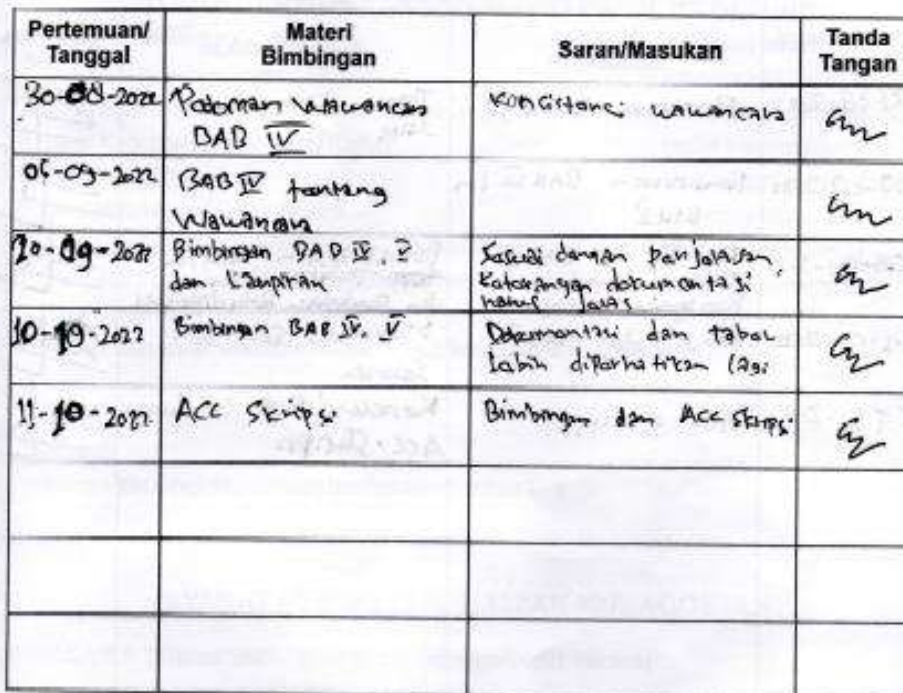 Pertemuan/
Tanggal
Materi
Bimbingan
Saran/Masukan
Tanda
Tangan
30-08-2022
Pedoman wawancara
BAB IV
Konsistensi wawancara
06-09-2022
BAB IV tentang
Wawancara
20-09-2022
Bimbingan BAB IV, V
dan Lampiran
Sesuai dengan penjelasan,
Keterangan dokumentasi
harus jelas
10-10-2022
Bimbingan BAB IV, V
Dokumentasi dan tabel
Lebih diperhatikan lagi
11-10-2022
ACC Skripsi
Bimbingan dan ACC Skripsi